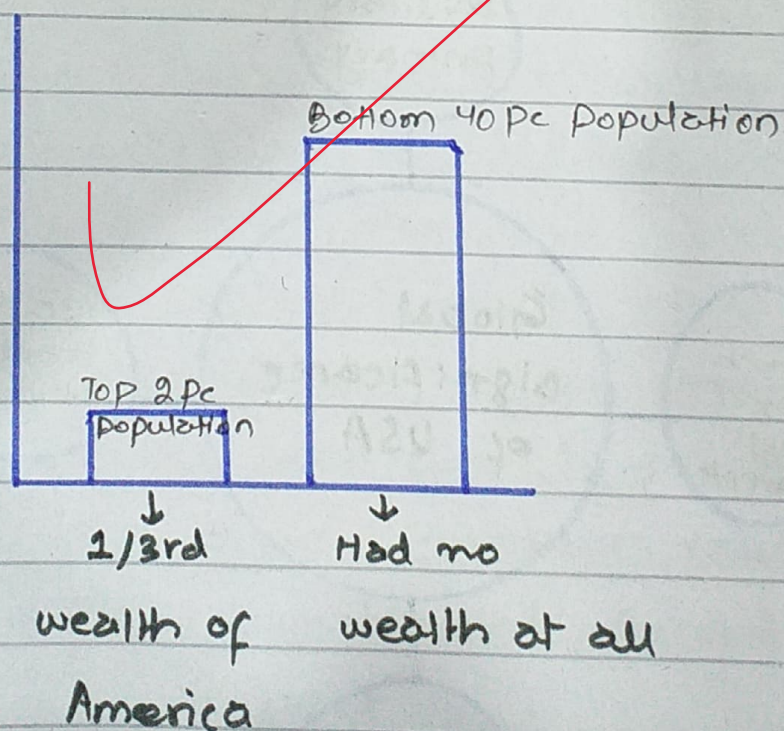 Bottom 40 pc population
Top 2 pc
population
1/3rd
wealth of
America
Had no
wealth at all